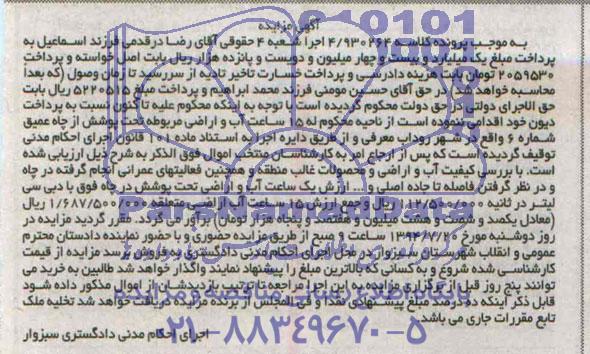 آگهی مزایده
به موجب پرونده کلاسه ۴/۹۳۰۲۶۴ اجرا شعبه ۴ حقوقی آقای رضا درقدمی فرزند اسماعیل به
پرداخت مبلغ یک میلیارد و بیست و چهار میلیون و دویست و پانزده هزار ریال بابت اصل خواسته و پرداخت
۲۰۵۹۵۳۰ تومان بابت هزینه دادرسی و پرداخت خسارت تاخیر تادیه از سررسید تا زمان وصول (که بعدا
محاسبه خواهد شد) در حق آقای حسین مومنی فرزند محمد ابراهیم و پرداخت مبلغ ۵۲۲۰۵۱۵ ریال بابت
حق الاجرای دولتی در حق دولت محکوم گردیده است با توجه به اینکه محکوم علیه تا کنون نسبت به پرداخت
دیون خود اقدامی ننموده است از ناحیه محکوم له ۱۵ ساعت آب و اراضی مربوطه تحت پوشش از چاه عمیق
شماره ۶ واقع در شهر روداب معرفی و از طریق دایره اجرا به استناد ماده ۱۰۱ قانون اجرای احکام مدنی
توقیف گردیده است که پس از ارجاع امر به کارشناسان منتخب اموال فوق الذکر به شرح ذیل ارزیابی شده
است. با بررسی کیفیت آب و اراضی و محصولات غالب منطقه و همچنین فعالیتهای عمرانی انجام گرفته در چاه
و در نظر گرفتن فاصله تا جاده اصلی و ... ارزش یک ساعت آب و اراضی تحت پوشش در چاه فوق با دبی سی
لیتر در ثانیه ۱۱۲/۵۰۰/۰۰۰ ریال و جمع ارزش ۱۵ ساعت آب و اراضی متعلقه ۱/۶۸۷/۵۰۰/۰۰۰ ریال
(معادل یکصد و شصت و هشت میلیون و هفتصد و پنجاه هزار تومان) برآورد می گردد. مقرر گردید مزایده در
روز دوشنبه مورخ ۱۳۹۴/۷/۲۰ ساعت ۹ صبح از طریق مزایده حضوری و با حضور نماینده دادستان محترم
عمومی و انقلاب شهرستان سبزوار در محل اجرای احکام مدنی دادگستری به فروش برسد مزایده از قیمت
کارشناسی شده شروع و به کسانی که بالاترین مبلغ را پیشنهاد نمایند واگذار خواهد شد طالبین به خرید می
توانند پنج روز قبل از برگزاری مزایده به این اجرا مراجعه تا ترتیب بازدیدشان از اموال مذکور داده شود
قابل ذکر اینکه ده درصد مبلغ پیشنهادی نقدا و فی المجلس از برنده مزایده دریافت خواهد شد تخلیه ملک
تابع مقررات جاری می باشد.
اجرای احکام مدنی دادگستری سبزوار
۰۲۱-۸۸۳۴۹۶۷۰-۵